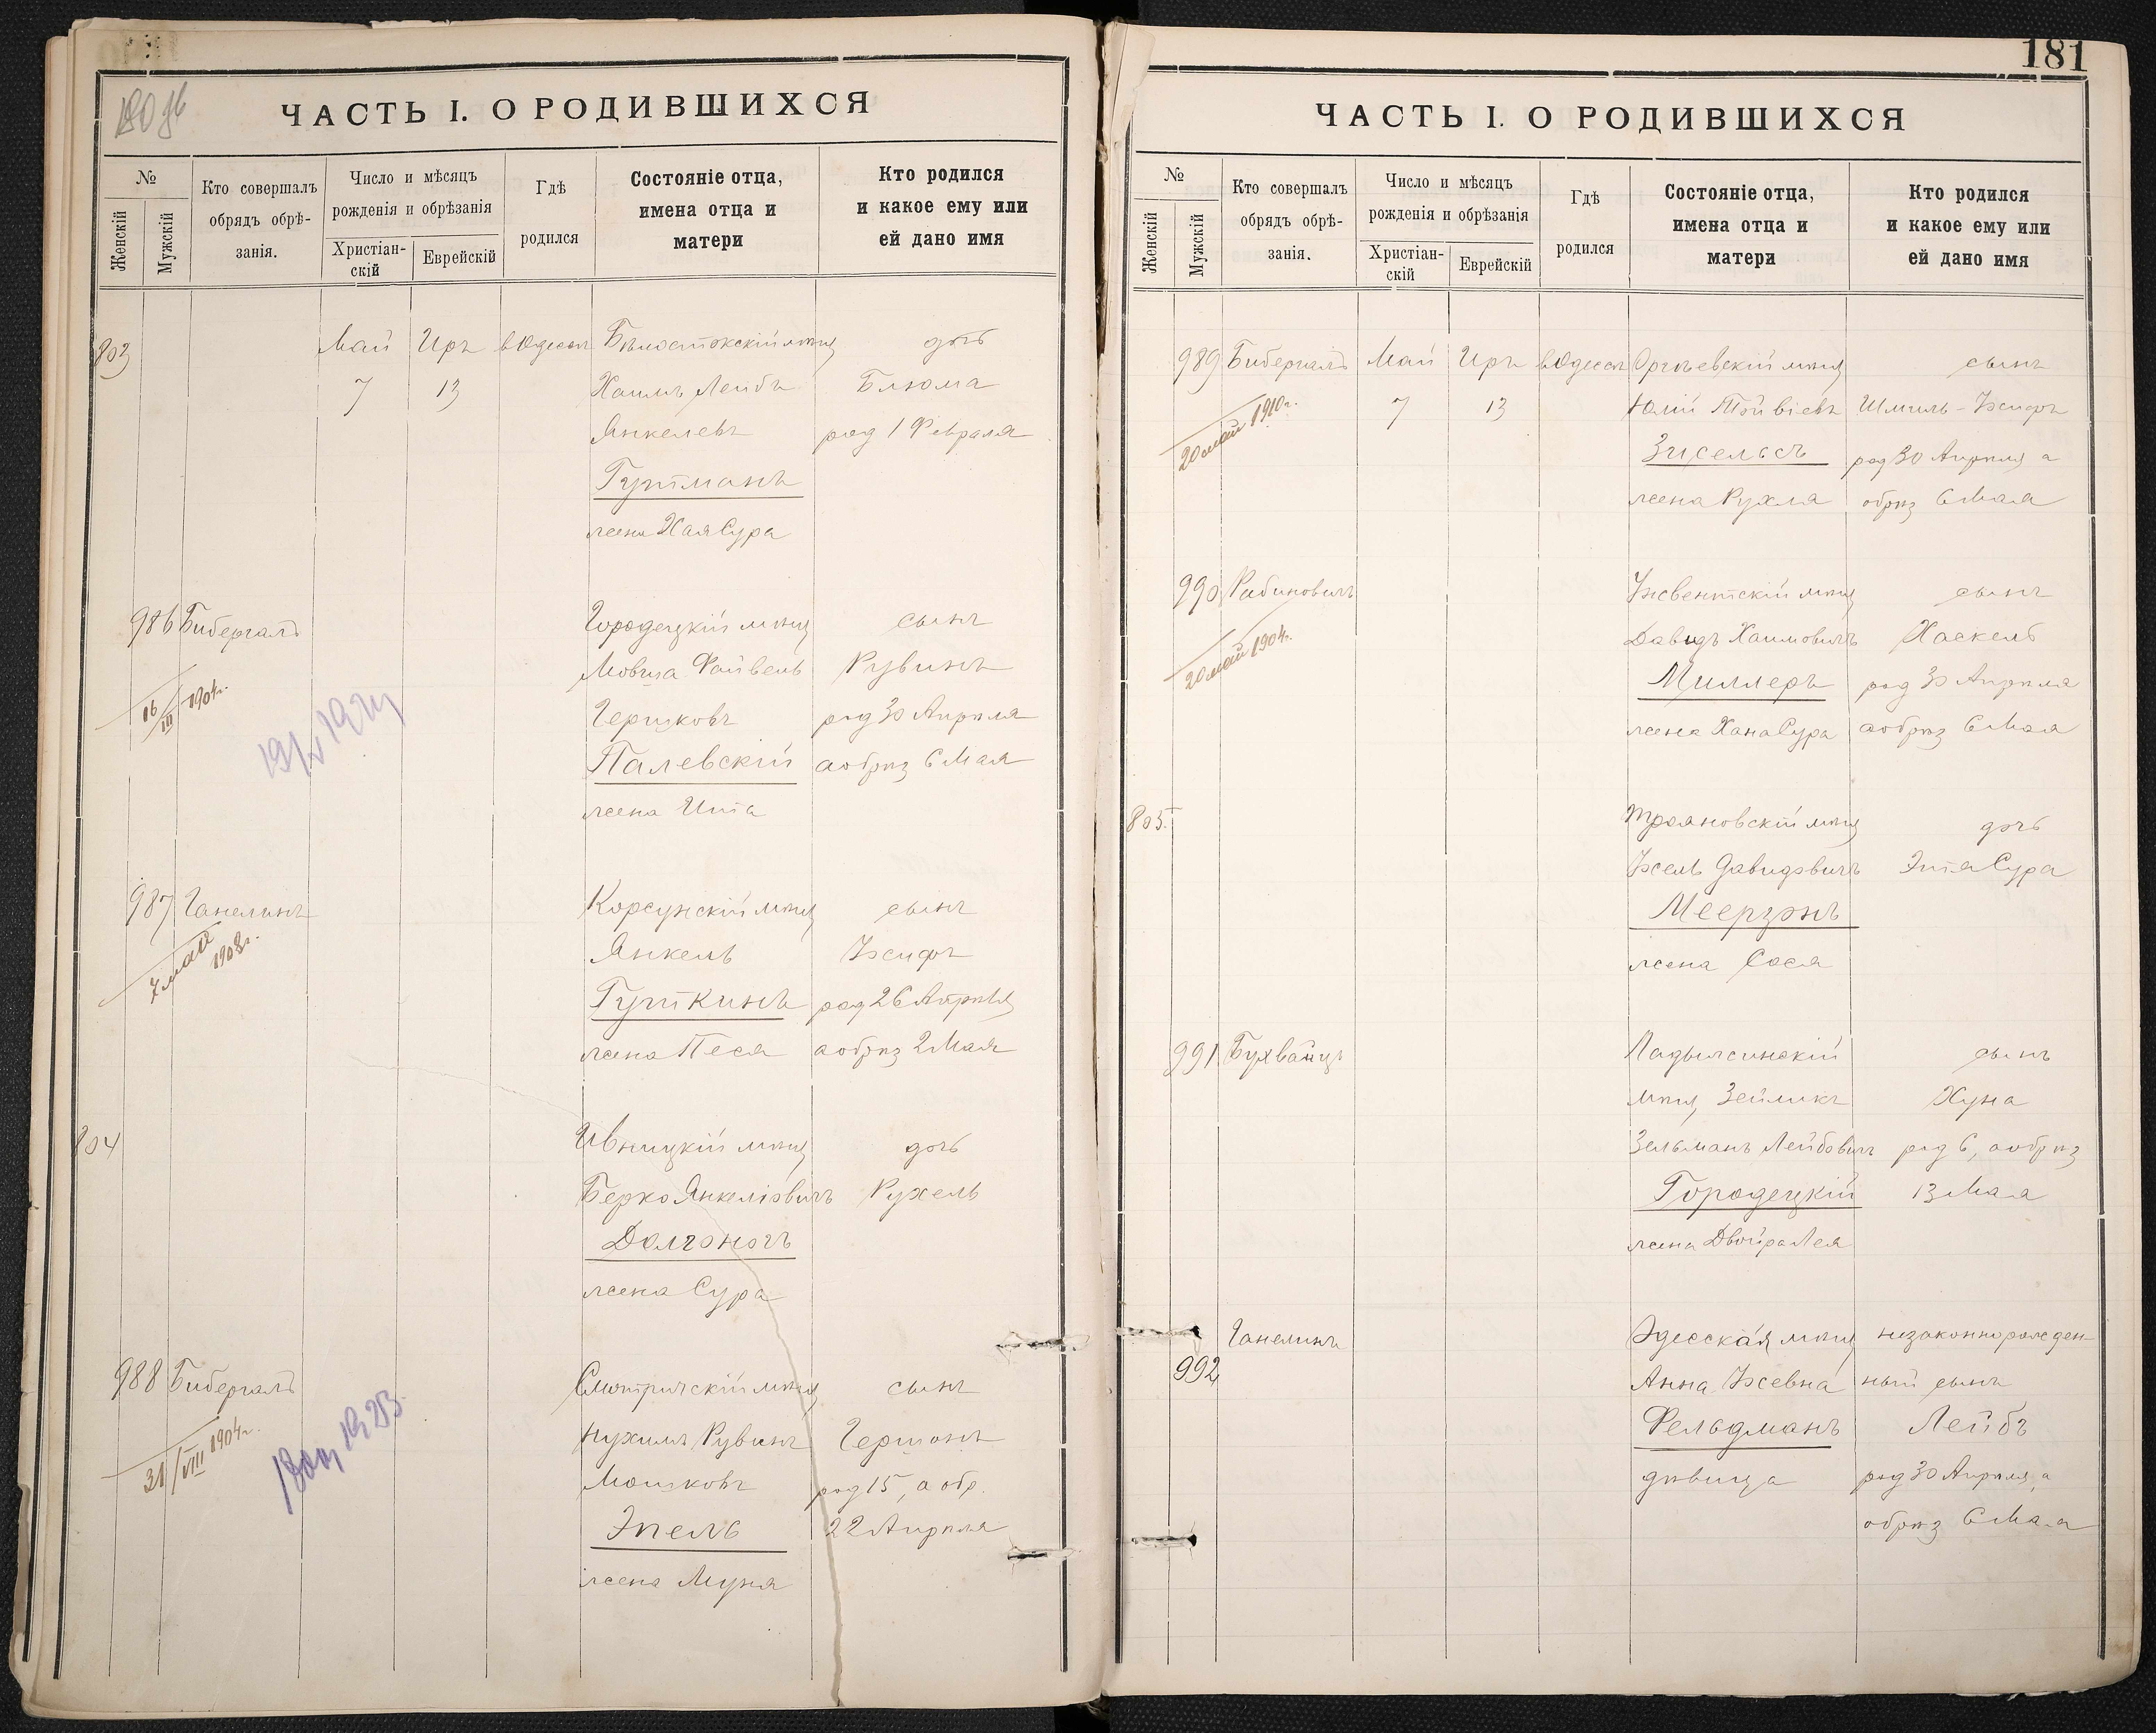 180 об
ЧАСТЬ I. О РОДИВШИХСЯ
№
Женскій
Мужскій
Кто совершалъ обрядъ обрѣзанія.
Число и мѣсяцъ рожденія и обрѣзанія
Христіанскій
Еврейскій
Гдѣ родился
Состояніе отца, имена отца и матери
Кто родился и какое ему или ей дано имя
803 Май Иръ в Одессѣ Бѣлостокскій мѣщ дочь
7 13 Хаимъ Лейбъ Блюма
Янкелевъ род 1 Февраля
Гутманъ
жена Хая Сура
986 Бибергалъ Городецкій мѣщ сынъ
Мовша Файвель Рувинъ
16/III 1904г. Гершковъ род 30 Апрѣля
Палевскій а обрѣз 6 Мая
жена Ита
987 Ганелинъ Корсунскій мѣщ сынъ
7 май 1908г. Янкель Іосифъ
Гуткинъ род 26 Апрѣля
жена Песя а обрѣз 2 Мая
804 Ивницкій мѣщ дочь
Берко Янкеліовичъ Рухель
Долгоногъ
жена Сура
988 Бибергалъ Смотричскій мѣщ сынъ
31/VIII 1904г. Нухимъ Рувинъ Гершонъ
Мошковъ род 15, а обр.
Эпель 22 Апрѣля
жена Муня
181
ЧАСТЬ I. О РОДИВШИХСЯ
№
Женскій
Мужскій
Кто совершалъ обрядъ обрѣзанія.
Число и мѣсяцъ рожденія и обрѣзанія
Христіанскій
Еврейскій
Гдѣ родился
Состояніе отца, имена отца и матери
Кто родился и какое ему или ей дано имя
989 Бибергалъ Май Иръ в Одессѣ Оргѣевскій мѣщ сынъ
20 май 1910г. 7 13 Юлій Тойвіевъ Шмиль-Іосифъ
Зисельсъ род 30 Апрѣля а
жена Рухля обрѣз 6 Мая
990 Рабиновичъ мѣщ сынъ
20 май 1904г. Давидъ Хаимовичъ Хаскель
Миллеръ род 30 Апрѣля
жена Хана Сура а обрѣз 6 Мая
805 Трояновскій мѣщ дочь
Іосель Давидовичъ Эта Сура
Меерзонъ
жена Сося
991 Бухвайцъ Ладыжинскій сынъ
мѣщ, Зейликъ Хуна
Зельманъ Лейбовичъ род 6, а обрѣз
Городецкій 13 Мая
жена Двойра Лея
992 Ганелинъ Одесская мѣщ незаконнорожден-
Анна Іосевна ный сынъ
Фельдманъ Лейбъ
дѣвица род 30 Апрѣля, а
обрѣз 6 Мая